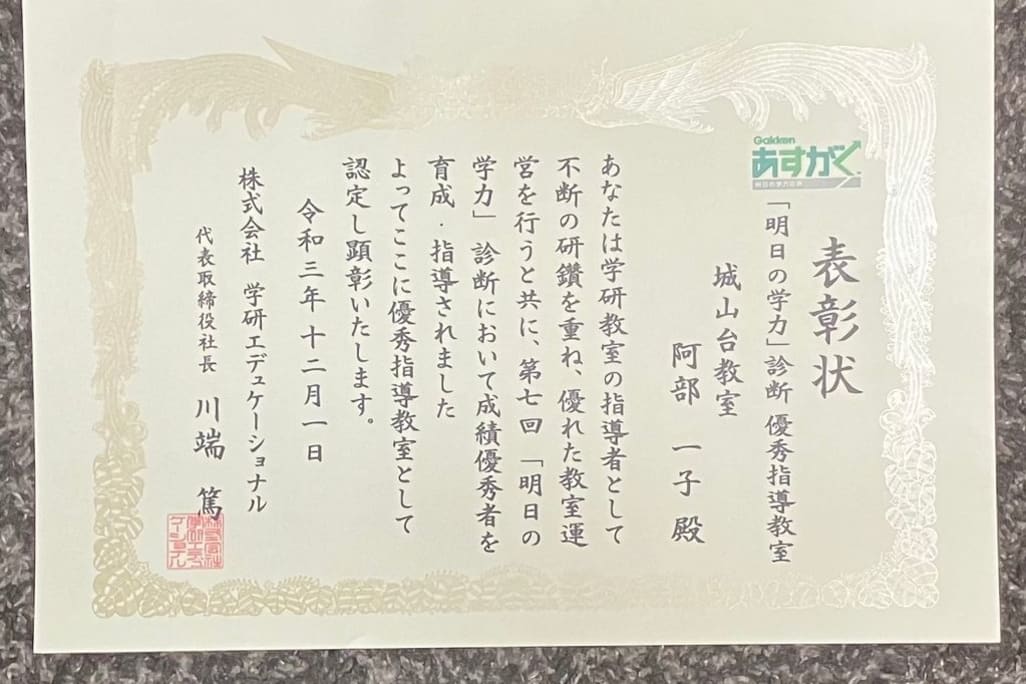 Gakken
あすがく
明日の学力診断
表彰状
「明日の学力」診断 優秀指導教室
城山台教室
阿部 一子 殿
あなたは学研教室の指導者として
不断の研鑽を重ね、優れた教室運
営を行うと共に、第七回「明日の
学力」診断において成績優秀者を
育成・指導されました
よってここに優秀指導教室として
認定し顕彰いたします。
令和三年十二月一日
株式会社 学研エデュケーショナル
代表取締役社長 川端 篤